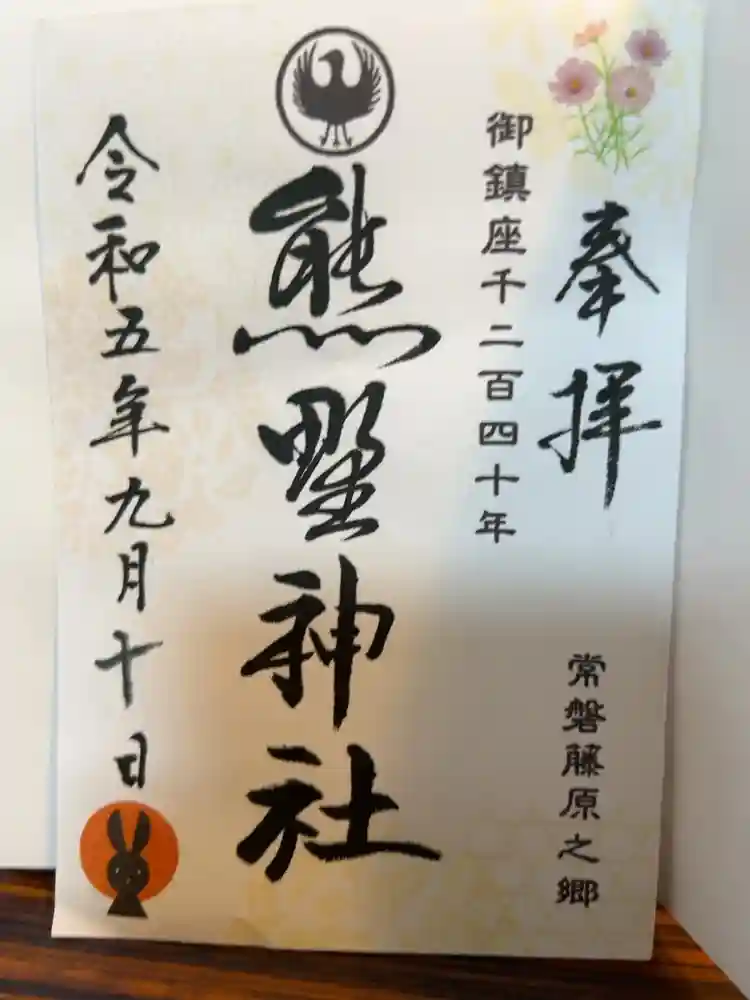 奉拝
常磐藤原之郷
御鎮座千二百四十年
熊埜神社
令和五年九月十日